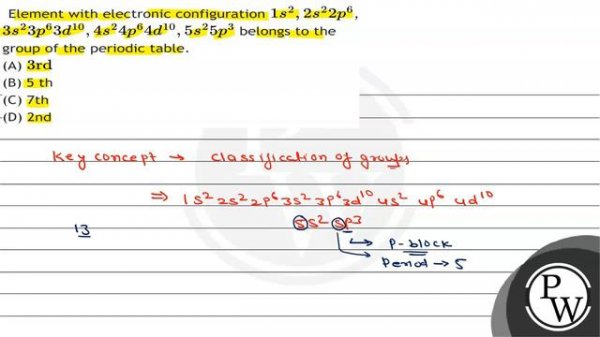 Element with electronic configuration 1s², 2s²2p⁶,
3s²3p⁶3d¹⁰, 4s²4p⁶4d¹⁰, 5s²5p³ belongs to the
group of the periodic table.
(A) 3rd
(B) 5 th
(C) 7th
(D) 2nd
Key concept → classification of groups
⇒ 1s² 2s² 2p⁶ 3s² 3p⁶ 3d¹⁰ 4s² 4p⁶ 4d¹⁰
5s² 5p³
13
→ P-block
Period → 5
P
W